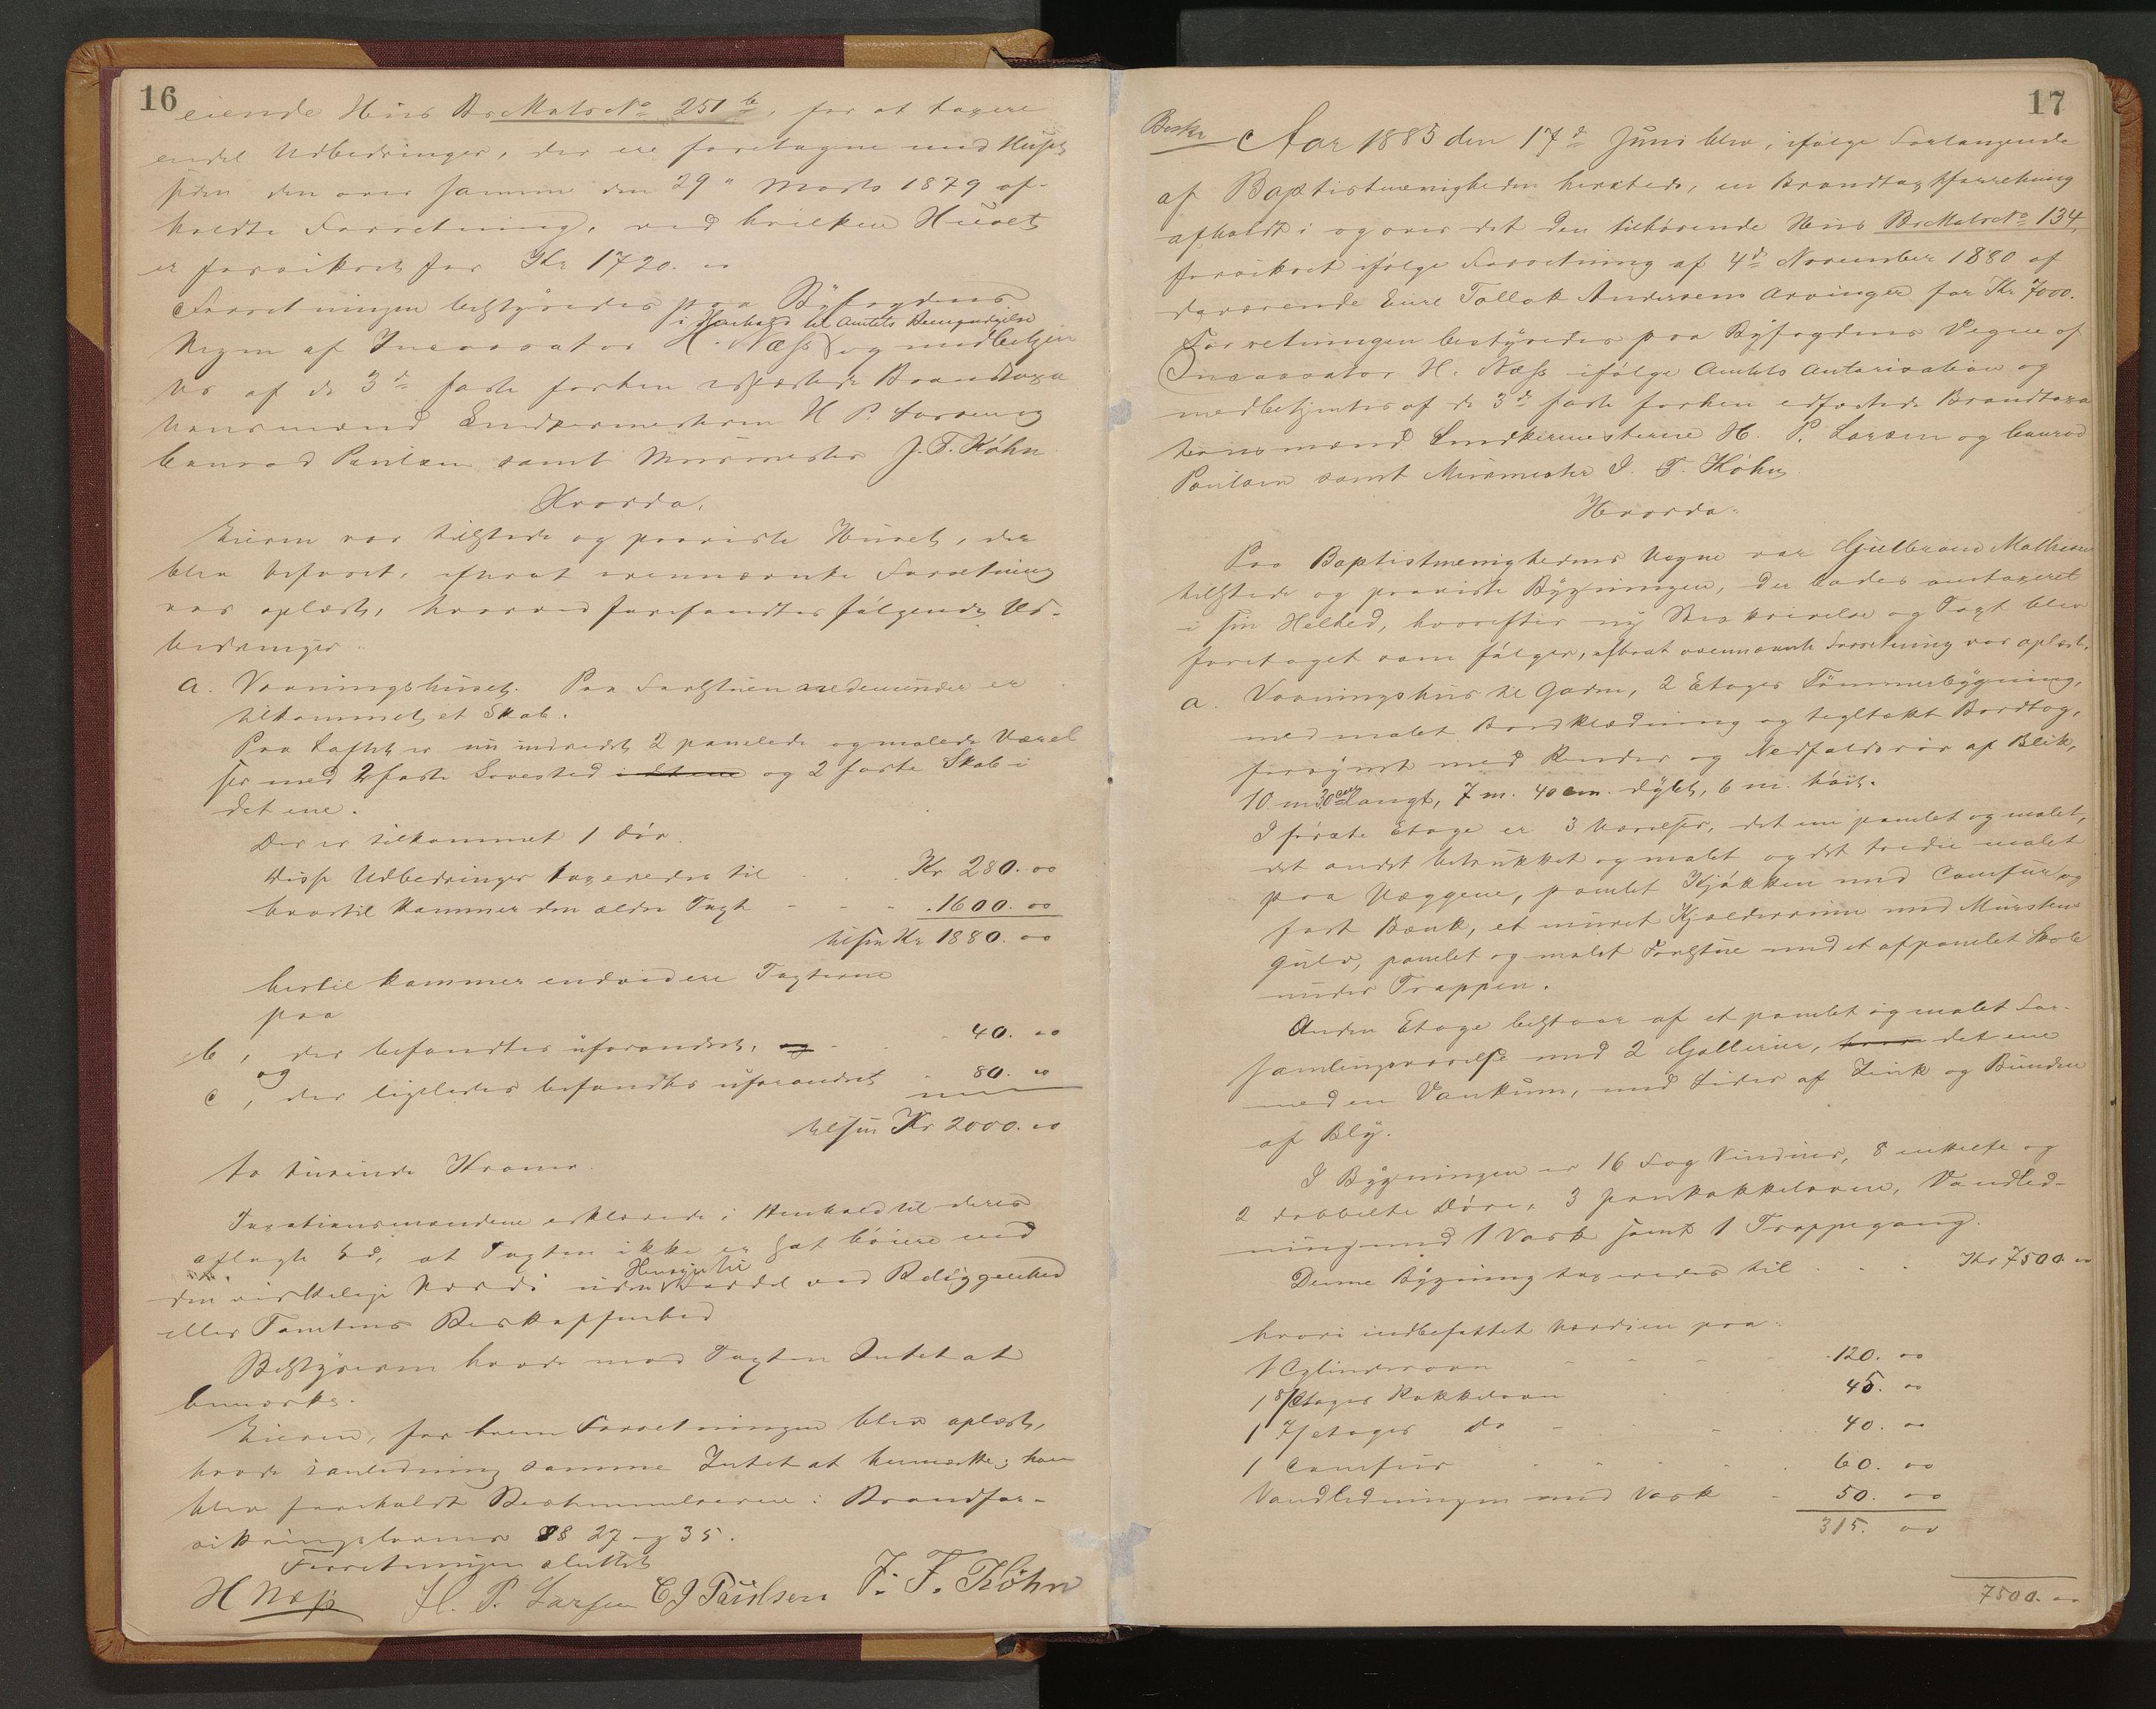 16
eiende Hus Br Matr No 251 b, for at taxere
endel Udbedringer, der ere foretagne med Huset
siden den over samme den 29de Marts 1879 af-
holdte Forretning, ved hvilken Huset
er forsikret for Kr 1720. 00
Forretningen bestyredes paa Byfogdens
i Henhold til Amtets Bemyndigelse
Vegne af Incassator H. Næss og medbetjen
tes af de 3de faste forhen edfæstede Brandtaxa
tionsmænd Snedkermestrene H P Larsen og
Conrad Paulsen samt Murmester J. F. Köhn
Hvorda:
Eieren var tilstede og paaviste Huset, der
blev befaret, efterat ovennævnte Forretning
var oplæst, hvorved forefandtes følgende Ud-
bedringer:
a. Vaaningshuset. Paa Forstuen nedenunder er
tilkommet et Skab.
Paa Loftet er nu indredet 2 panelede og malede Værel
ser med 2 faste Sovested og 2 faste Skab i
det ene.
Der er tilkommet 1 Dør.
Disse Udbedringer taxeredes til Kr 280. 00
hvortil kommer den ældre Taxt - - - 1600. 00
tilsm Kr 1880. 00
hertil kommer endvidere Taxterne
paa
b, der befandtes uforandret, og 40. 00
og
c, der ligeledes befandtes uforandret 80. 00
tilsm Kr 2000. 00
to tusinde Kroner.
Taxationsmændene erklærede i Henhold til deres
aflagte Ed, at Taxten ikke er sat høiere end
den virkelige Værdi uden Hensyn til Fordel ved Beliggenhed
eller Tomtens Beskaffenhed
Bestyreren havde mod Taxten Intet at
bemærke.
Eieren, for hvem Forretningen blev oplæst,
havde i anledning samme Intet at bemærke; han
blev foreholdt Bestemmelserne i Brandfor-
sikringslovens §§ 27 og 35.
Forretningen sluttet
H Næss H. P. Larsen C J Paulsen J. F. Köhn
17
Beskr Aar 1885 den 17de Juni blev, ifølge Forlangende
af Baptistmenigheden hersteds, en Brandtaxtforretning
afholdt i og over det den tilhørende Hus Br Matr No 134,
forsikret ifølge Forretning af 4de November 1880 af
daværende Eiere Tallak Andersens Arvinger for Kr 7000.
Forretningen bestyredes paa Byfogdens Vegne af
Incassator H. Næss ifølge Amtets Autorisation og
medbetjentes af de 3de faste forhen edfæstede Brandtaxa
tionsmænd Snedkermesterene H. P. Larsen og Conrad
Paulsen samt Murmester J. F. Köhn
Hvorda:
Paa Baptistmenighedens Vegne var Gulbrand Mathisen
tilstede og paaviste Bygningen, der lades omtaxeret
i sin Helhed, hvorefter ny Beskrivelse og Taxt blev
foretaget som følger, efterat ovennævnte Forretning var oplæst.
a. Vaaningshus til Gaden, 2 Etages Tømmerbygning,
med malet Bordklædning og tegltækt Bordtag,
forsynet med Render og Nedfaldsrør af Blik,
10 m. 30 cm langt, 7 m. 40 cm. dybt, 6 m. høit.
I første Etage er 3 Værelser, det ene panelet og malet,
det andet betrukket og malet og det tredie malet
paa Væggene, panelet Kjøkken med Comfur og
fast Bænk, et muret Kjælderrum med Mursteens
gulv, panelet og malet Forstue med et afpanelet Skab
under Trappen.
Anden Etage bestaar af et panelet og malet For-
samlingsværelse med 2 Gallerier, det ene
med en Vankum, med Sider af Zink og Bunden
af Bly.
I Bygningen er 16 Fag Vinduer, 8 enkelte og
2 dobbelte Døre, 3 Jernkakkelovne, Vandled-
ning med 1 Vask samt 1 Trappegang.
Denne Bygning taxeredes til . . . Kr 7500. 00
hvori indbefattet Værdien paa:
1 Cylinderovn - - - 120. 00
1 3/etages Kakkelovn 45. 00
1 2/etages do - - 40. 00
1 Comfur 60. 00
Vandledningen med Vask - 50. 00
315. 00
7500. 00